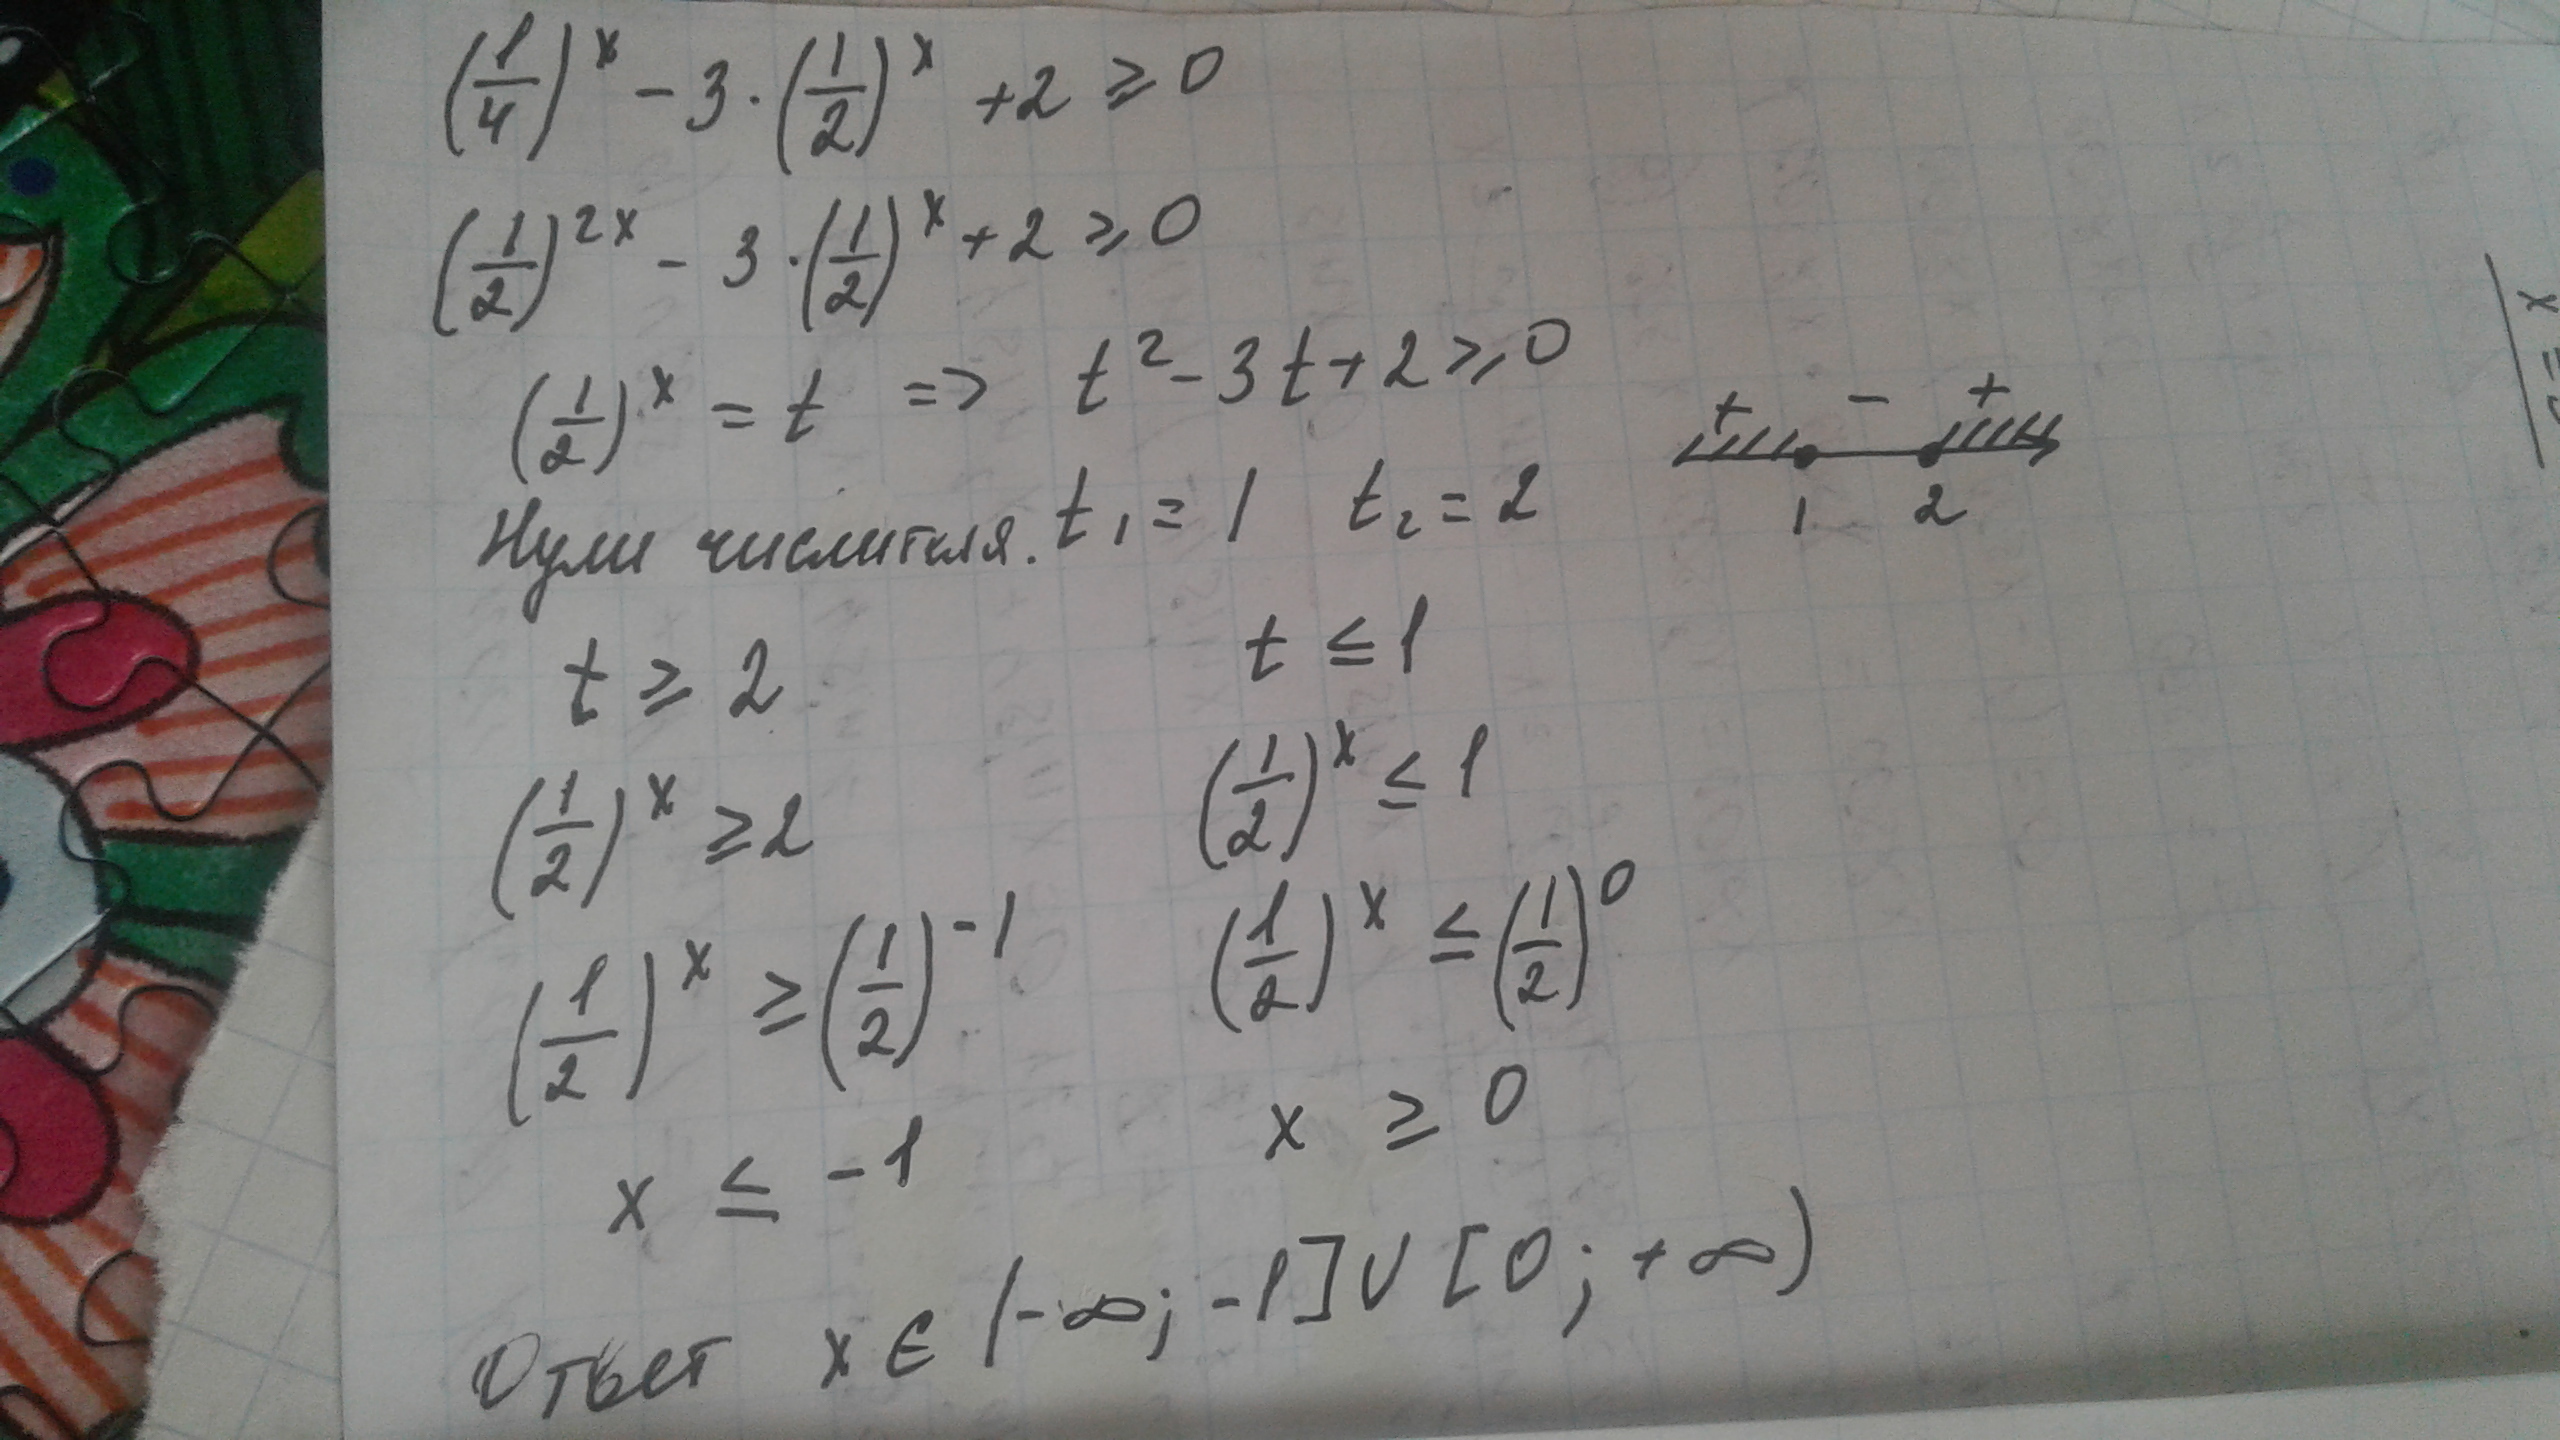 (1/4)^x - 3·(1/2)^x + 2 ≥ 0
(1/2)^2x - 3·(1/2)^x + 2 ≥ 0
(1/2)^x = t => t² - 3t + 2 ≥ 0
+ - +
1 2
Нули числителя. t₁ = 1 t₂ = 2
t ≥ 2 t ≤ 1
(1/2)^x ≥ 2 (1/2)^x ≤ 1
(1/2)^x ≥ (1/2)^-1 (1/2)^x ≤ (1/2)^0
x ≤ -1 x ≥ 0
Ответ x ∈ (-∞; -1] ∪ [0; +∞)
x =